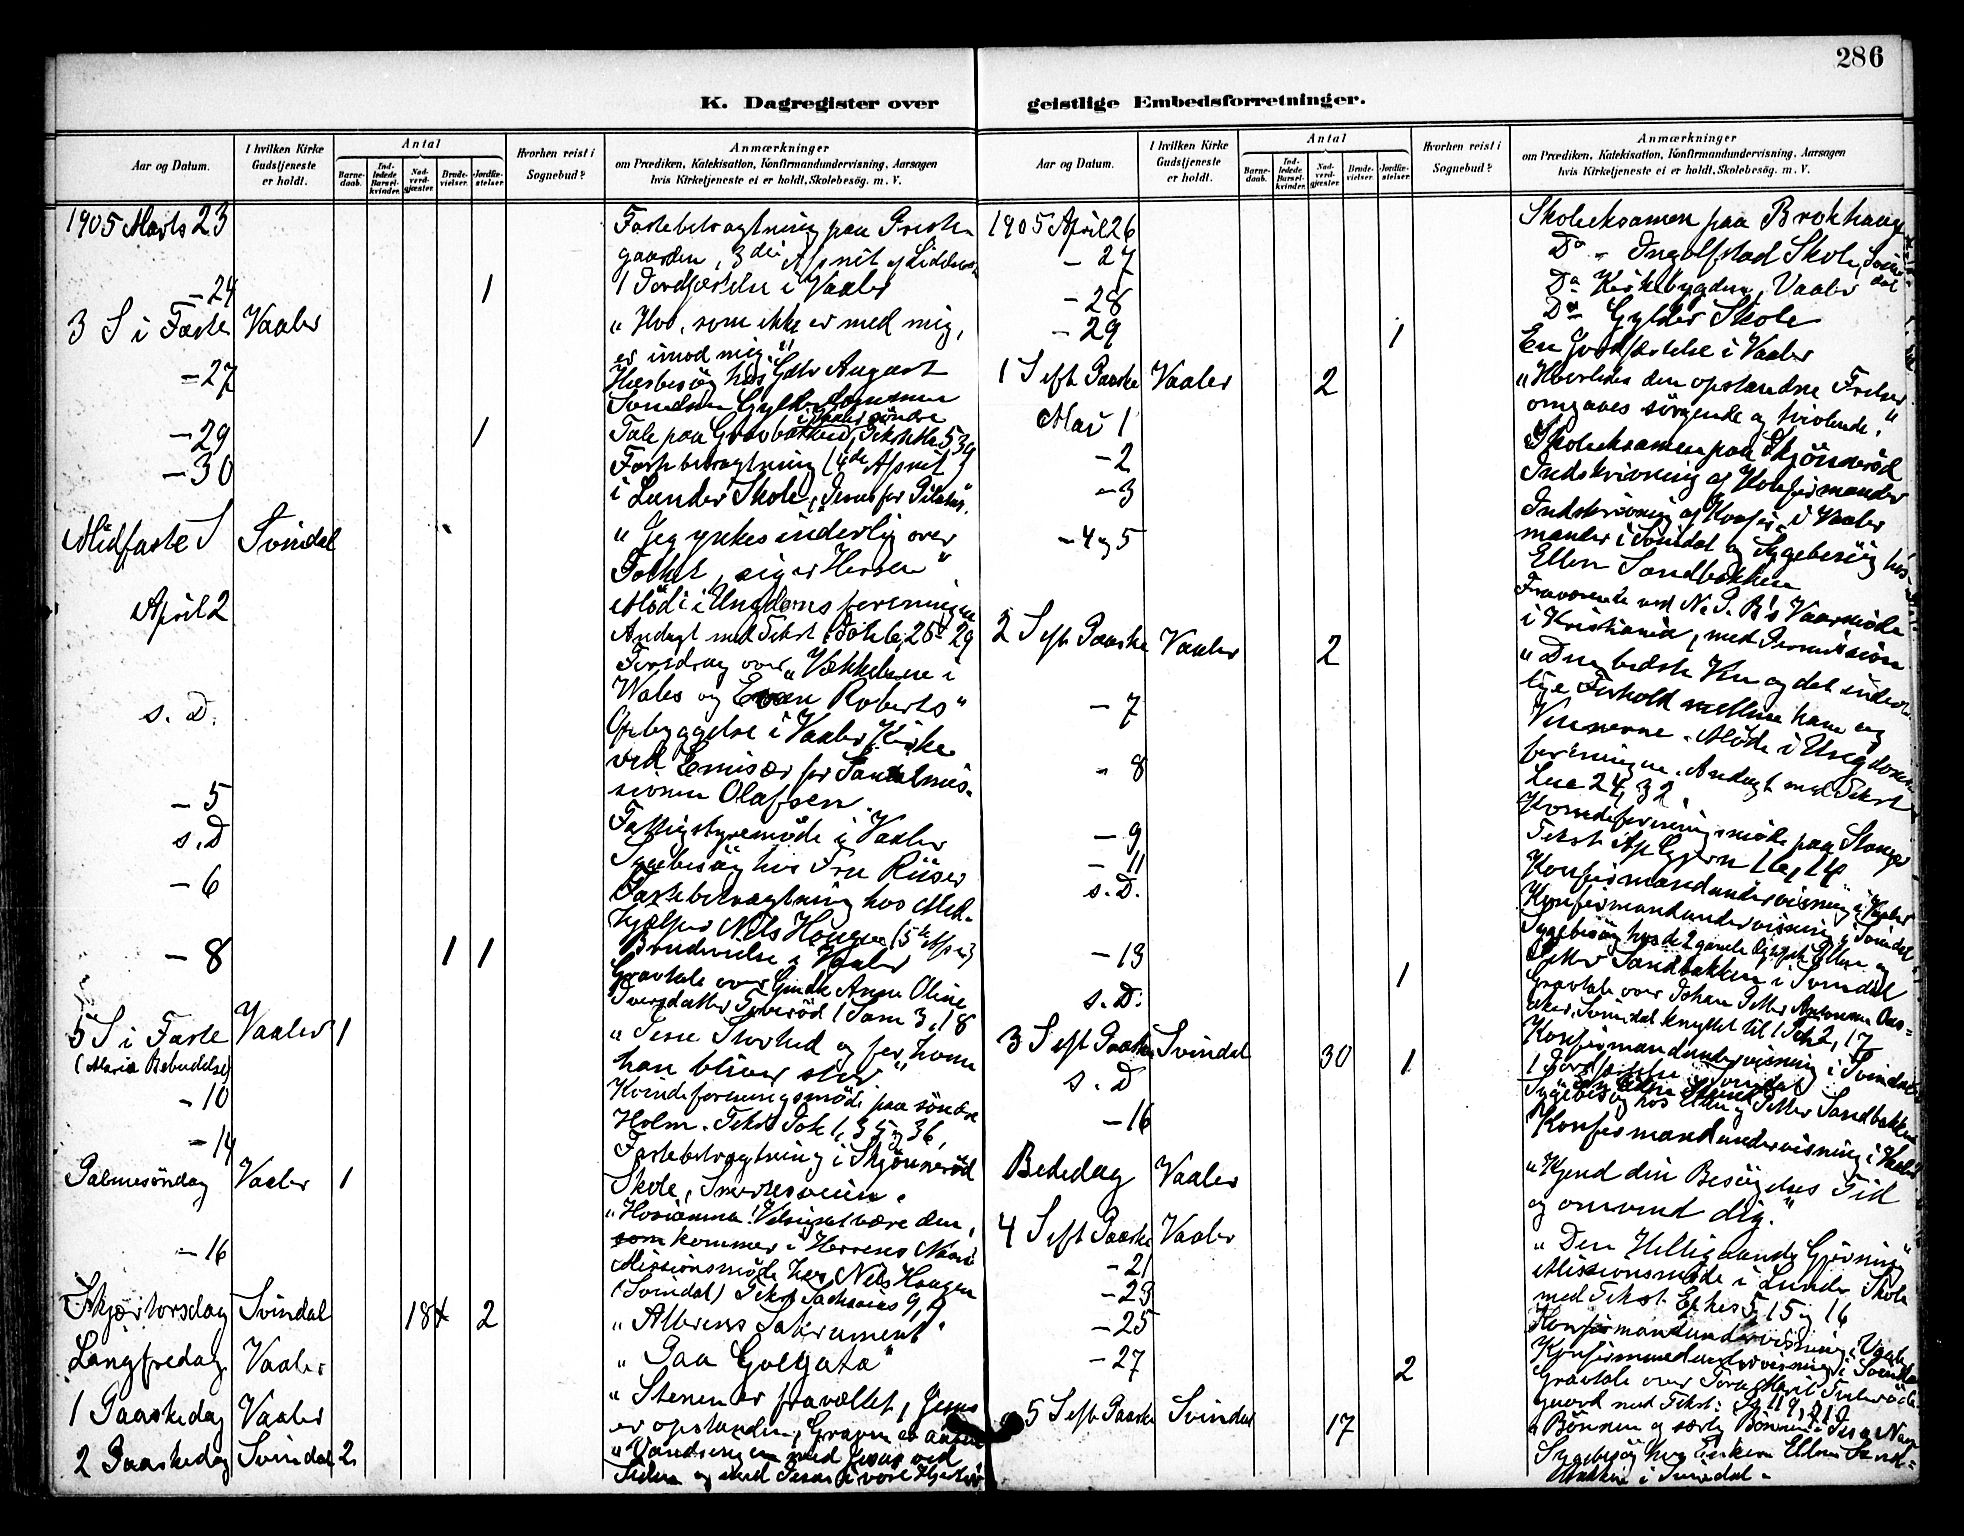 286
K. Dagregister over geistlige Embedsforretninger.
Aar og Datum.
I hvilken Kirke Gudstjeneste er holdt.
Antal
Barnedaab.
Indledede Barselkvinder.
Nadverdgjæster
Brudevielser.
Jordfæstelser.
Hvorhen reist i Sognebud?
Anmærkninger
om Prædiken, Katekisation, Konfirmandundervisning, Aarsagen
hvis Kirketjeneste ei er holdt, Skolebesøg. m. V.
1905 Marts 23 Fastebetragtning paa Preste-
gaarden, 3die Afsnit af
-24 1 1 Jordfæstelse i Vaaler
3 S i Faste Vaaler "Hvo, som ikke er med mig,
er imod mig."
-27 Husbesøg hos Gdbr August
Svendsen Gylder
-29 1 Tale paa Gravbakken i Vaaler søndre
-30 Fastebetragtning (4de Afsnit)
i Lunder Skole, "Jesus for Pilatus".
Midfaste S Svindal "Jeg ynkes inderlig over
Folket, siger Herren"
April 2 Møde i Ungdomsforeningen
Andagt med Tekst
Foredrag over "Vækkelsene i
Wales og Evan Roberts"
s. D. Opbyggelse i Vaaler Kirke
ved Emisær for Santalmis-
sionen Olafsen
-5 Fattigstyremøde i Vaaler
s. D Sygebesøg hos Fru Riiser
-6 Fastebetragtning hos Med-
hjælper Nils Haugen
-8 1 1 Brudevielse i Vaaler
Gravtale over Gmdk Anne Oline
1 Sam 3, 18
5 S i Faste Vaaler 1
(Mariæ Bebudelse) han bliver stor"
-10 Kvindeforeningsmøde paa søndre
Holm. Tekst Joh 1, 35 og 36
-14 Fastebetragtning i Skjønnerød
Skole, Smertesveien.
Palmesøndag Vaaler 1 "Hosianna! Velsignet være den,
som kommer i Herrens Navn
-16 Missionsmøde hos Nils Haugen
(Svindal) Tekst Sacharias 9, 9
Skjærtorsdag Svindal 18 2 "Alterens Sakrament"
Langfredag Vaaler "Paa Golgata"
1 Paaskedag Vaaler "Stenen er fravæltet, Jesus
er opstanden, Graven er aaben
2 Paaskedag Svindal 2 "Vandringen med Jesus ved
Siden og med Jesus i vore Hjerter
Aar og Datum.
I hvilken Kirke Gudstjeneste er holdt.
Antal
Barnedaab.
Indledede Barselkvinder.
Nadverdgjæster
Brudevielser.
Jordfæstelser.
Hvorhen reist i Sognebud?
Anmærkninger
om Prædiken, Katekisation, Konfirmandundervisning, Aarsagen
hvis Kirketjeneste ei er holdt, Skolebesøg. m. V.
1905 April 26 Skoleeksamen paa Brokhaug
-27 Do " Ingolfstad Skole
-28 Do Kirkebygden, Vaaler
-29 1 Do Gylder Skole
En Jordfæstelse i Vaaler
1 S eft Paaske Vaaler 2 "Hvorledes den opstandne Frelser
omgaaes sørgende og tvivlende."
Mai 1 Skoleeksamen paa Skjønnerød
-2 Indskrivning af Konfirmander
-3 Indskrivning af Konfir- i Vaaler
-4 og 5 mander i Svindal og Sygebesøg hos
Ellen Sandbakken
Fraværende ved N. P. F's Vaarmøde
i Kristiania, med Permission
2 S eft Paaske Vaaler 2 "Den bedste Ven og det inder-
lige Forhold mellem ham og
-7 Vennerne. Møde i Ungdoms-
foreningen. Andagt med Tekst
-8 Luc 24, 32
Kvindeforeningsmøde paa Stanger
Tekst Ap Gjern 16, 14
-9 Konfirmandundervisning i Vaaler
-11 Konfirmandundervisning i Svindal
s. D. Sygebesøg hos de 2 gamle Ellen og
Petter Sandbakken i Svindal
-13 1 Gravtale over Johan Petter
s. D. Svindal knyttet til 1 Pet 2, 17
Konfirmandundervisning i Svindal
3 S eft Paaske Svindal 30 1 1 Jordfæstelse i Svindal
s. D Sygebesøg hos Ellen og Petter Sandbakken
-16 Konfirmandundervisning i Vaaler
Bededag Vaaler "Kjend din Besøgelses Tid
og omvend dig."
4 S eft Paaske Vaaler "Den Helligaands Gjerning"
-21 Missionsmøde i Lunder Skole
med Tekst Efhes 5, 15 og 16
-23 Konfirmandundervisning i Vaaler
-25 Konfirmandundervisning i Svindal
-27 2 Gravtale over
med Tekst:
5 S eft Paaske Svindal 17 "Bønnen og særlig Bønnen i Jesu Navn
Sygebesøg hos Enken Ellen Sand-
bakken i Svindal.